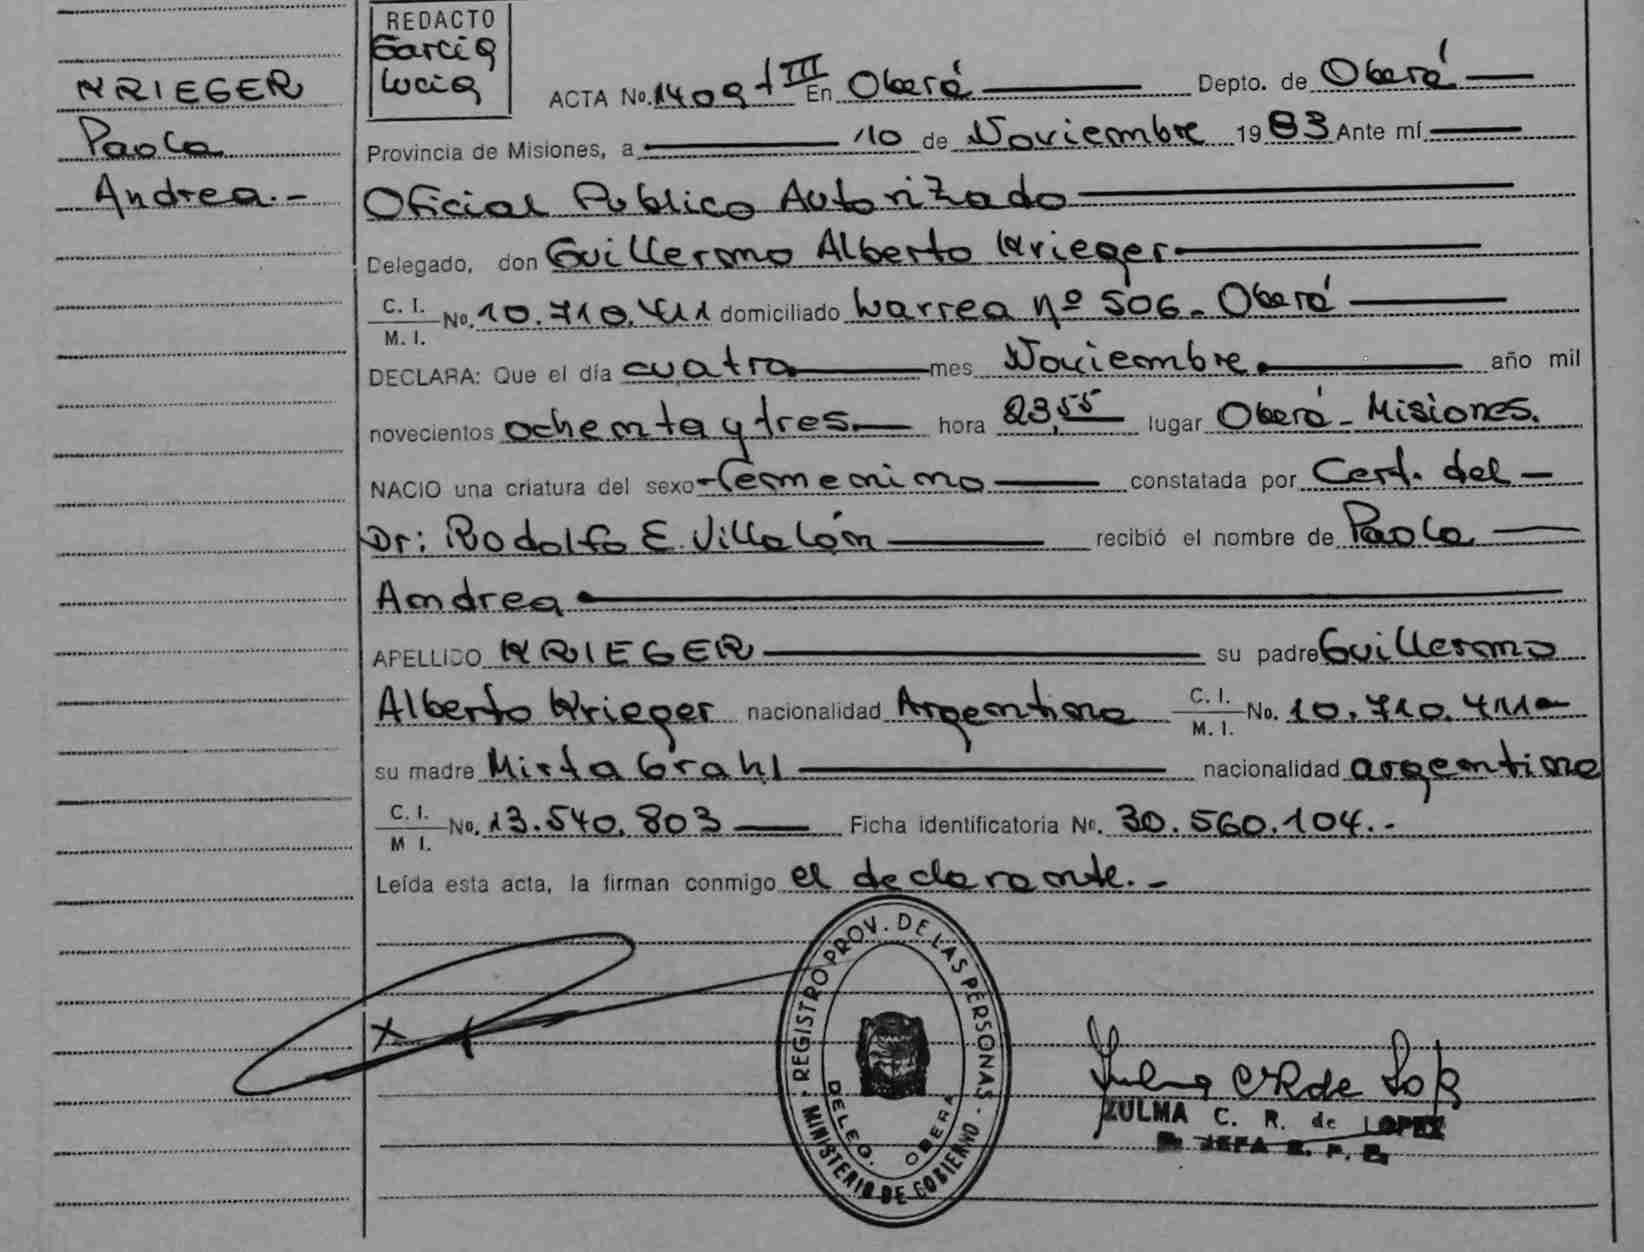 KRIEGER
Paola
Andrea.-
REDACTO
Garcia
Lucia
ACTA No. 1409 t III En Oberá Depto. de Oberá
Provincia de Misiones, a 10 de Noviembre 1983 Ante mí
Oficial Publico Autorizado
Delegado, don Guillermo Alberto Krieger
C. I.
M. I. No. 10.710.411 domiciliado Larrea nº 506. Oberá
DECLARA: Que el día cuatro mes Noviembre año mil
novecientos ochenta y tres. hora 23,55 lugar Oberá - Misiones.
NACIO una criatura del sexo femenino constatada por Cert. del
Dr: Rodolfo E. Villalón recibió el nombre de Paola
Andrea
APELLIDO KRIEGER su padre Guillermo
Alberto Krieger nacionalidad Argentina C. I.
M. I. No. 10.710.411
su madre Mirta Grahl nacionalidad argentina
C. I.
M I. No. 13.540.803 Ficha identificatoria Nº. 30.560.104.-
Leída esta acta, la firman conmigo el declarante.-
REGISTRO PROV. DE LAS PERSONAS
MINISTERIO DE GOBIERNO
DELEG. OBERA
ZULMA C. R. de LOPEZ
JEFA